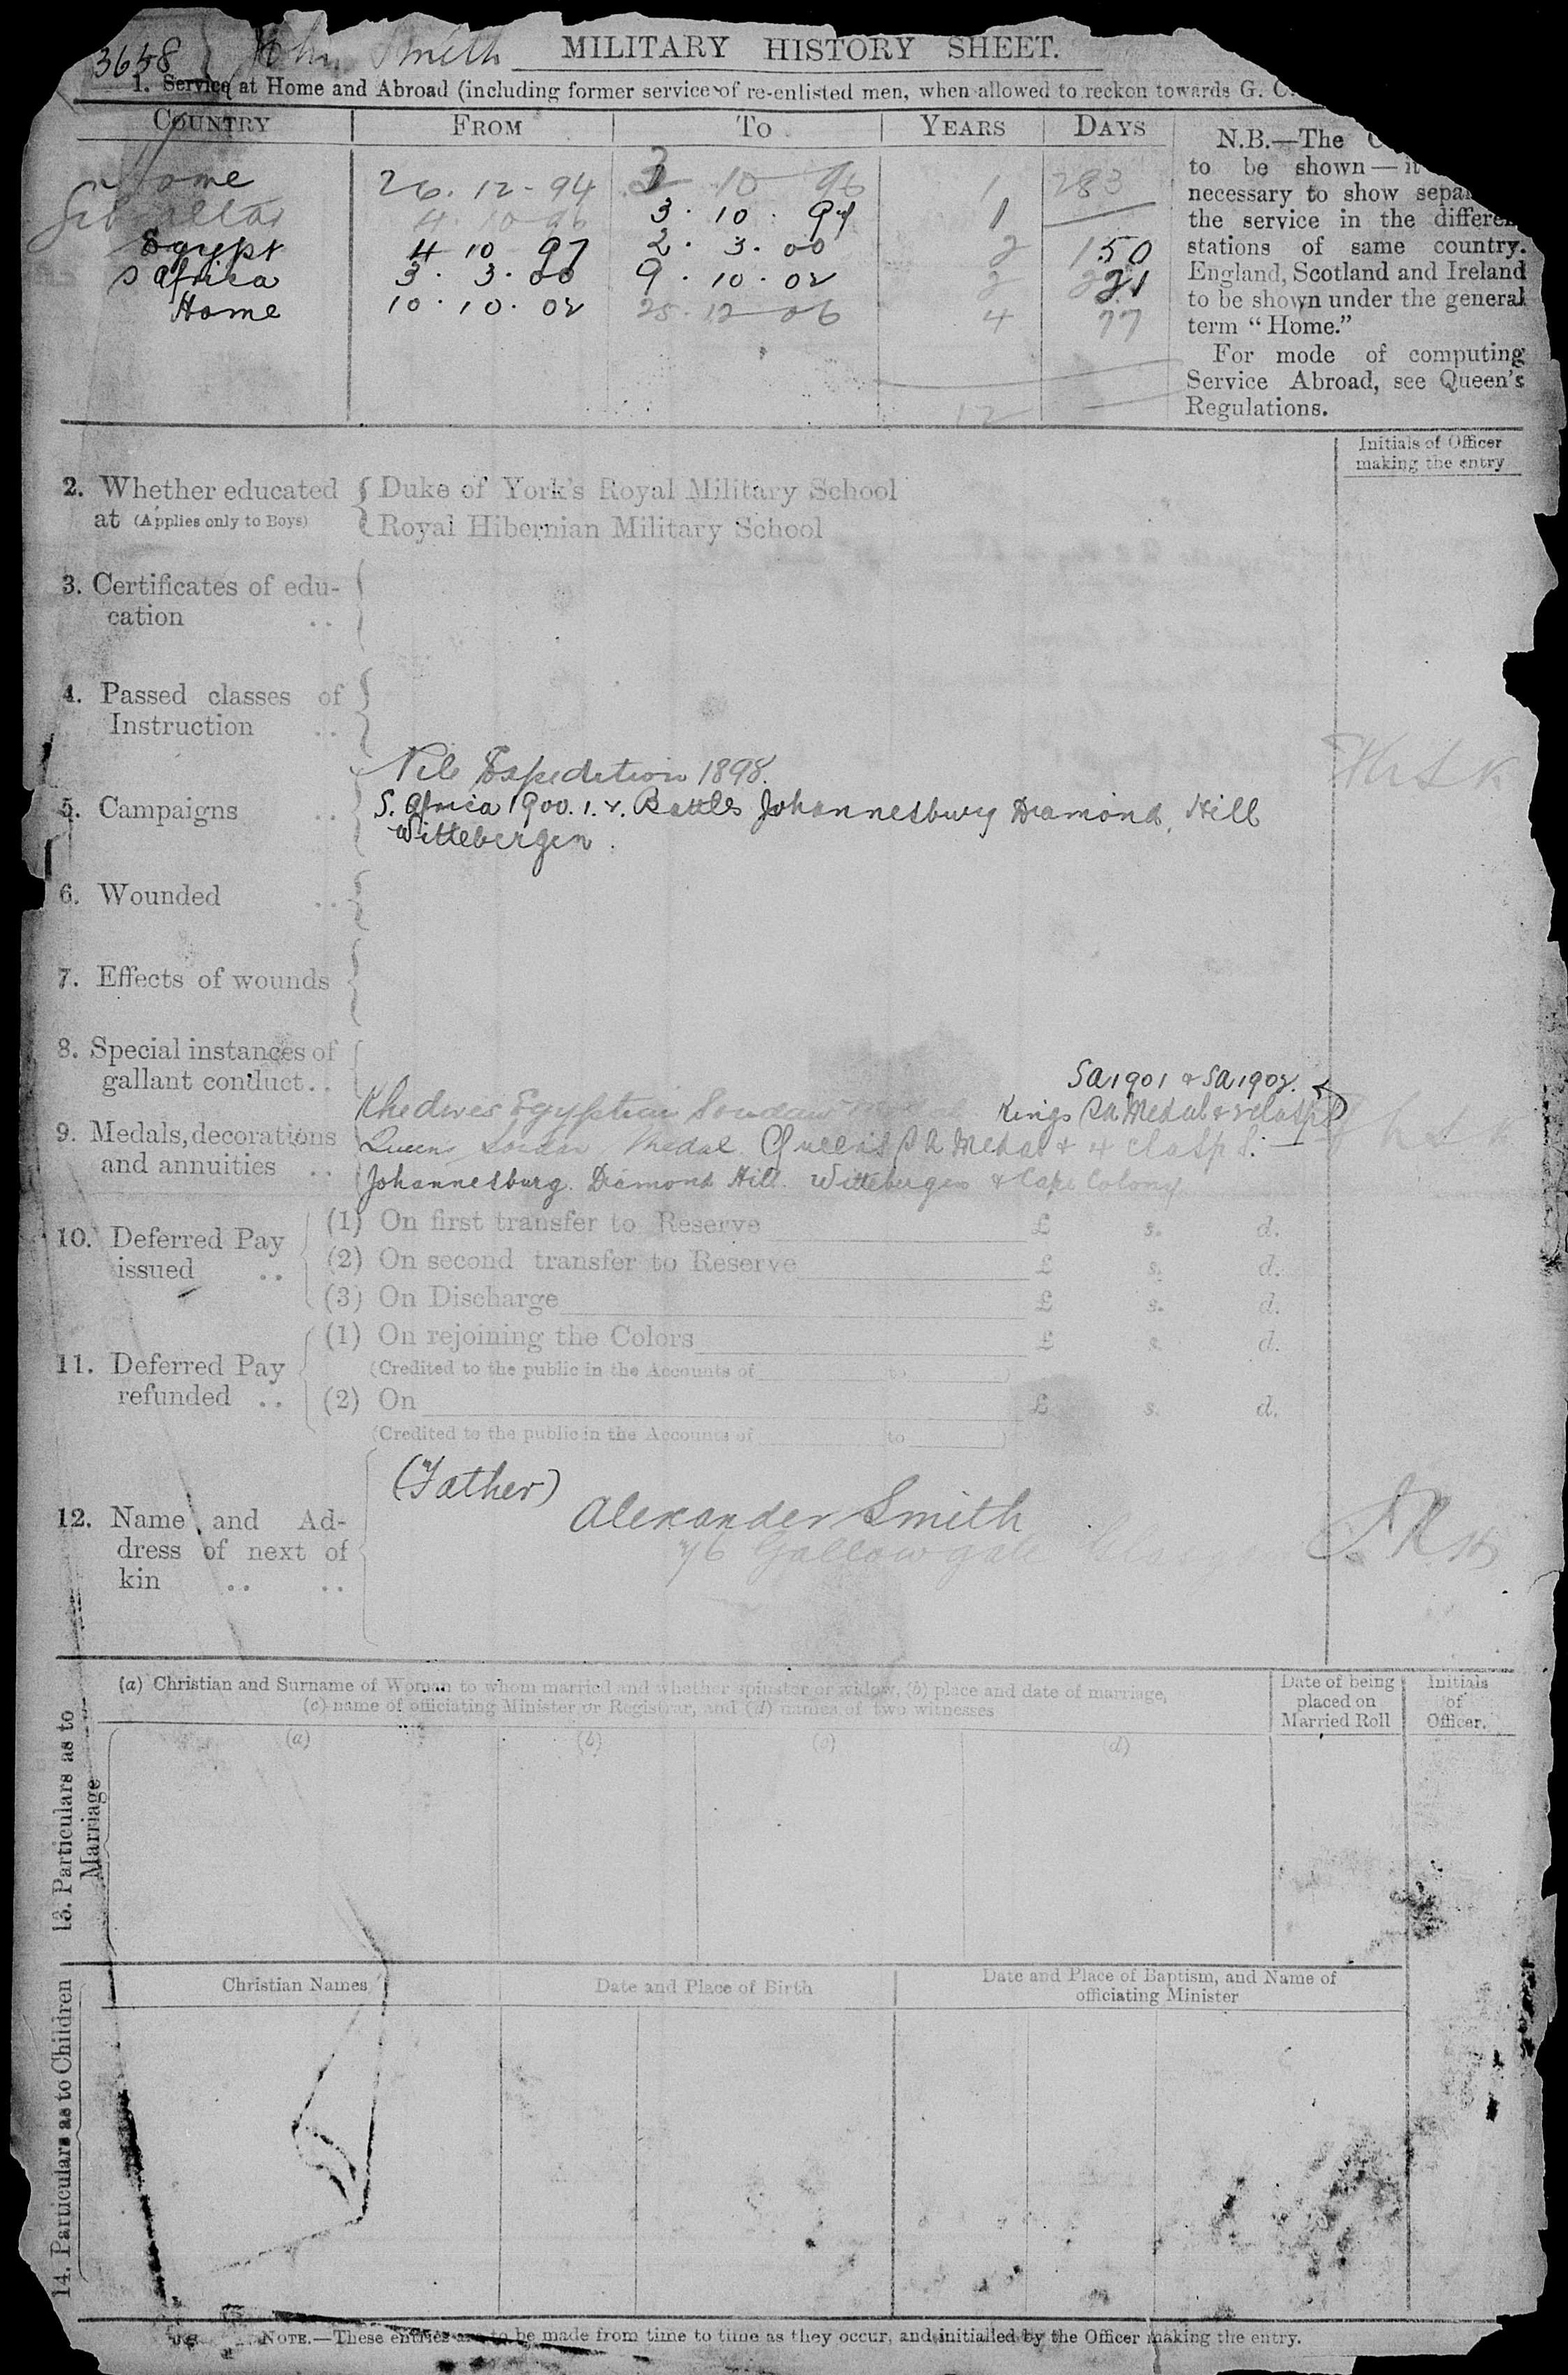 3658 John Smith MILITARY HISTORY SHEET.
1. Service at Home and Abroad (including former service of re-enlisted men, when allowed to reckon towards G. C.
COUNTRY FROM TO YEARS DAYS
Home 26.12.94 3 10 96 1 283
Gibraltar 4.10.96 3.10.97 1 —
Egypt 4 10 97 2.3.00 2 150
S Africa 3.3.00 9.10.02 2 221
Home 10.10.02 25.12.06 4 77
12
N.B.—The
to be shown—it
necessary to show
the service in the
stations of same country.
England, Scotland and Ireland
to be shown under the general
term "Home."
For mode of computing
Service Abroad, see Queen's
Regulations.
Initials of Officer
making the entry
2. Whether educated { Duke of York's Royal Military School
at (Applies only to Boys) { Royal Hibernian Military School
3. Certificates of edu-
cation ..
4. Passed classes of
Instruction ..
Nile Expedition 1898.
5. Campaigns .. S. Africa 1900.1.2. Battles Johannesburg Diamond Hill
Wittebergen.
6. Wounded ..
7. Effects of wounds
8. Special instances of
gallant conduct..
SA 1901 & SA 1902.
Khedives Egyptian Soudan Medal Kings SA Medal & 2 clasps
9. Medals, decorations Queens Soudan Medal. Queens SA Medal & 4 clasps.
and annuities .. Johannesburg. Diamond Hill. Wittebergen & Cape Colony
10. Deferred Pay issued ..
(1) On first transfer to Reserve £ s. d.
(2) On second transfer to Reserve £ s. d.
(3) On Discharge £ s. d.
11. Deferred Pay refunded ..
(1) On rejoining the Colors £ s. d.
(Credited to the public in the Accounts of to )
(2) On £ s. d.
(Credited to the public in the Accounts of to )
(Father)
Alexander Smith
76 Gallowgate Glasgow
12. Name and Ad-
dress of next of
kin .. ..
13. Particulars as to Marriage
(a) Christian and Surname of Woman to whom married and whether spinster or widow, (b) place and date of marriage,
(c) name of officiating Minister or Registrar, and (d) names of two witnesses
Date of being
placed on
Married Roll
Initials
of
Officer.
(a) (b) (c) (d)
14. Particulars as to Children
Christian Names Date and Place of Birth Date and Place of Baptism, and Name of
officiating Minister
NOTE.—These entries are to be made from time to time as they occur, and initialled by the Officer making the entry.